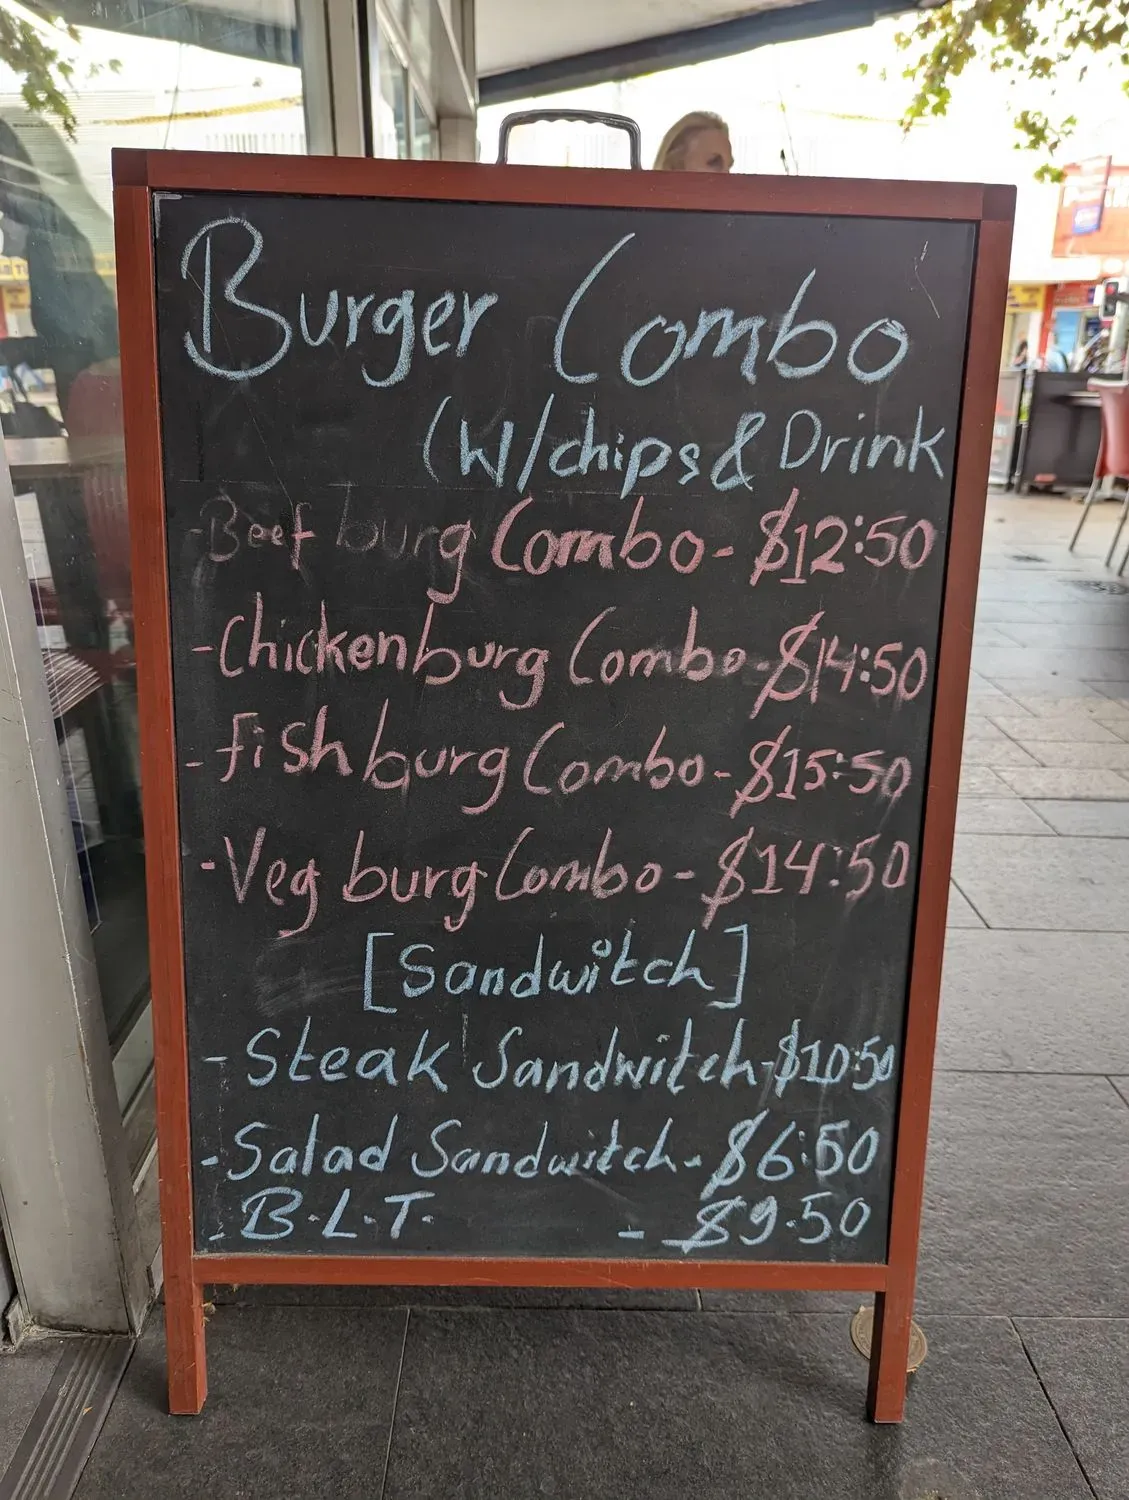 Burger Combo
(W/chips & Drink
- Beef burg Combo - $12:50
- Chicken burg Combo - $14:50
- fish burg Combo - $15:50
- Veg burg Combo - $14:50
[Sandwitch]
- Steak Sandwitch - $10:50
- Salad Sandwitch - $6:50
- B.L.T. - $9.50